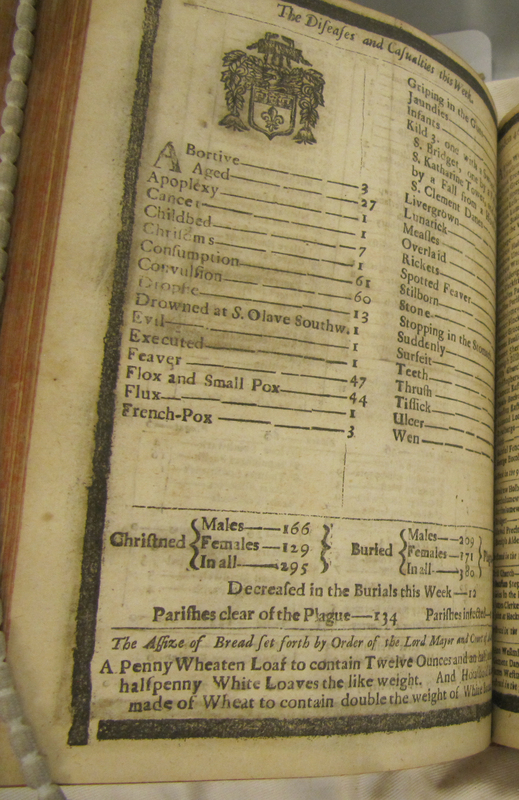 The Diſeaſes and Caſualties this Week.
ABortive 3
Aged 27
Apoplexy 1
Cancer 1
Childbed 7
Chriſoms 1
Conſumption 61
Convulſion 60
Dropſie 13
Drowned at S. Olave Southw. 1
Evil 1
Executed 1
Feaver 47
Flox and Small Pox 44
Flux 1
French-Pox 3
Griping in the
Jaundies
Infants
Kild 3. one with a
S. Bridget, one by
S. Katharine Tower
by a Fall from a
S. Clement Danes
Livergrown
Lunatick
Meaſles
Overlaid
Rickets
Spotted Feaver
Stilborn
Stone
Stopping in the Stomach
Suddenly
Surfeit
Teeth
Thruſh
Tiſſick
Ulcer
Wen
Chriſtned { Males—166 Females—129 In all—295 }
Buried { Males—209 Females—171 In all—380 }
Decreaſed in the Burials this Week—12
Pariſhes clear of the Plague—134 Pariſhes infected
The Aſſize of Bread ſet forth by Order of the Lord Mayor and Court of
A Penny Wheaten Loaf to contain Twelve Ounces and
halfpenny White Loaves the like weight. And
made of Wheat to contain double the weight of White